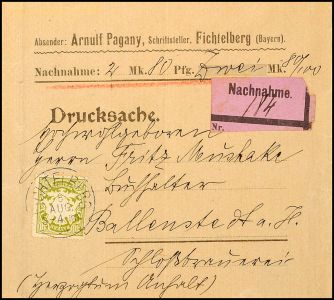 Absender: Arnulf Pagany, Schriftsteller, Fichtelberg (Bayern).
Nachnahme: 2 Mk. 80 Pfg. Zwei Mk. 80/100
Nachnahme.
Nr. 174
Drucksache.
Hochwohlgeboren
Herrn Fritz Mushake
Buchhalter
Ballenstedt a. H.
Schloßbrauerei
(Herzogtum Anhalt)